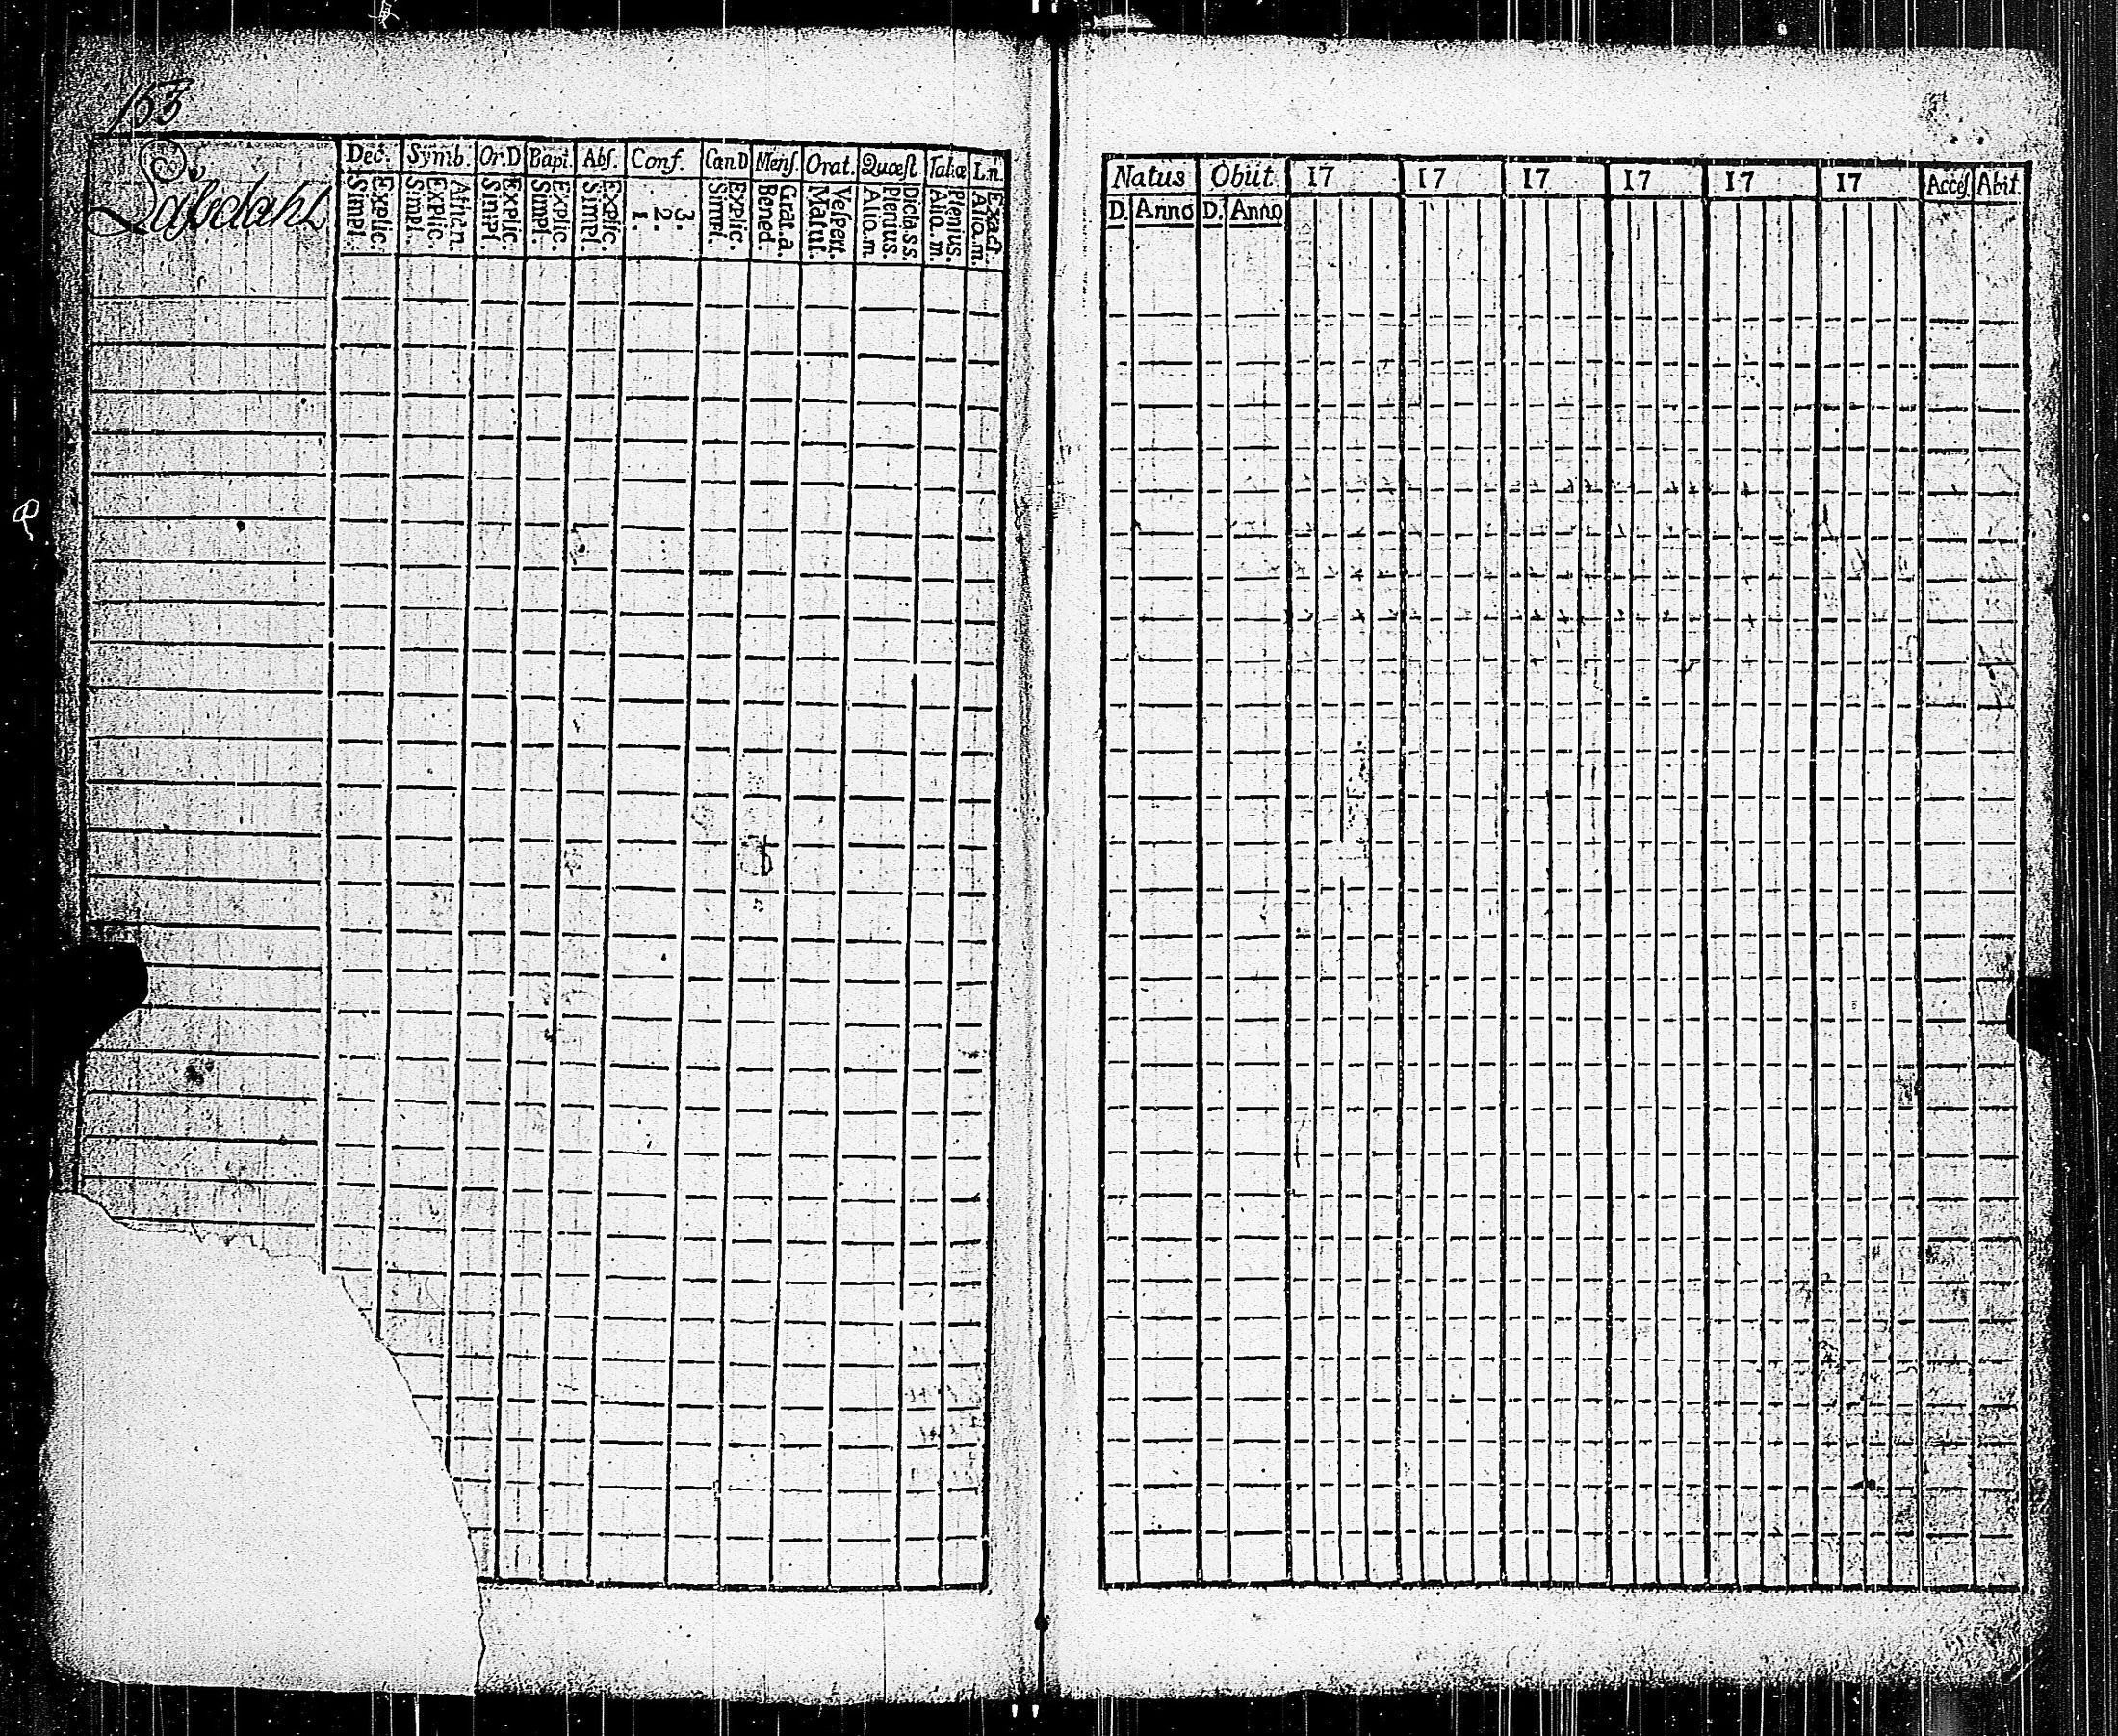 153
Låbdahl
Dec. Symb. Or.D Bapt. Abſ. Conf. Can.D Menſ. Orat. Quæſt Tabæ Ln.
Simpl. Explic. Simpl. Explic. Athan. Simpl. Explic. Simpl. Explic. Simpl. Explic. 1. 2. 3. Simpl. Explic. Bened. Grat.a. Matut. Veſpert. Alio.m. Plenius. Dict.a.s.s. Alio.m. Plenius. Alio.m. Exact.
Natus Obiit. 17 17 17 17 17 17 Acceſ Abit.
D. Anno D. Anno